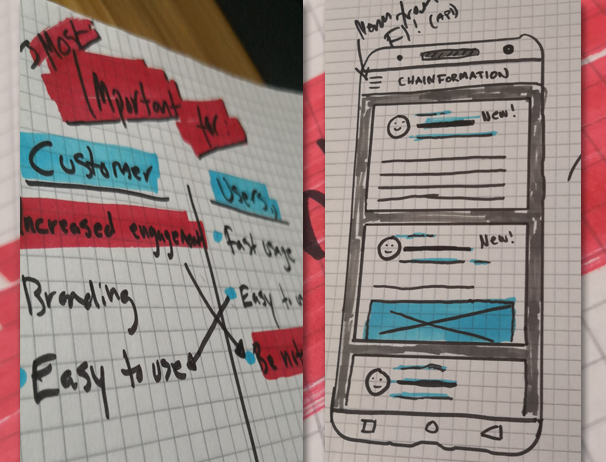 Most
Important
for
Customer
Increased engagement
Branding
Easy to use
Users
Fast usage
Easy to
Be
(API)
CHAINFORMATION
New!
New!